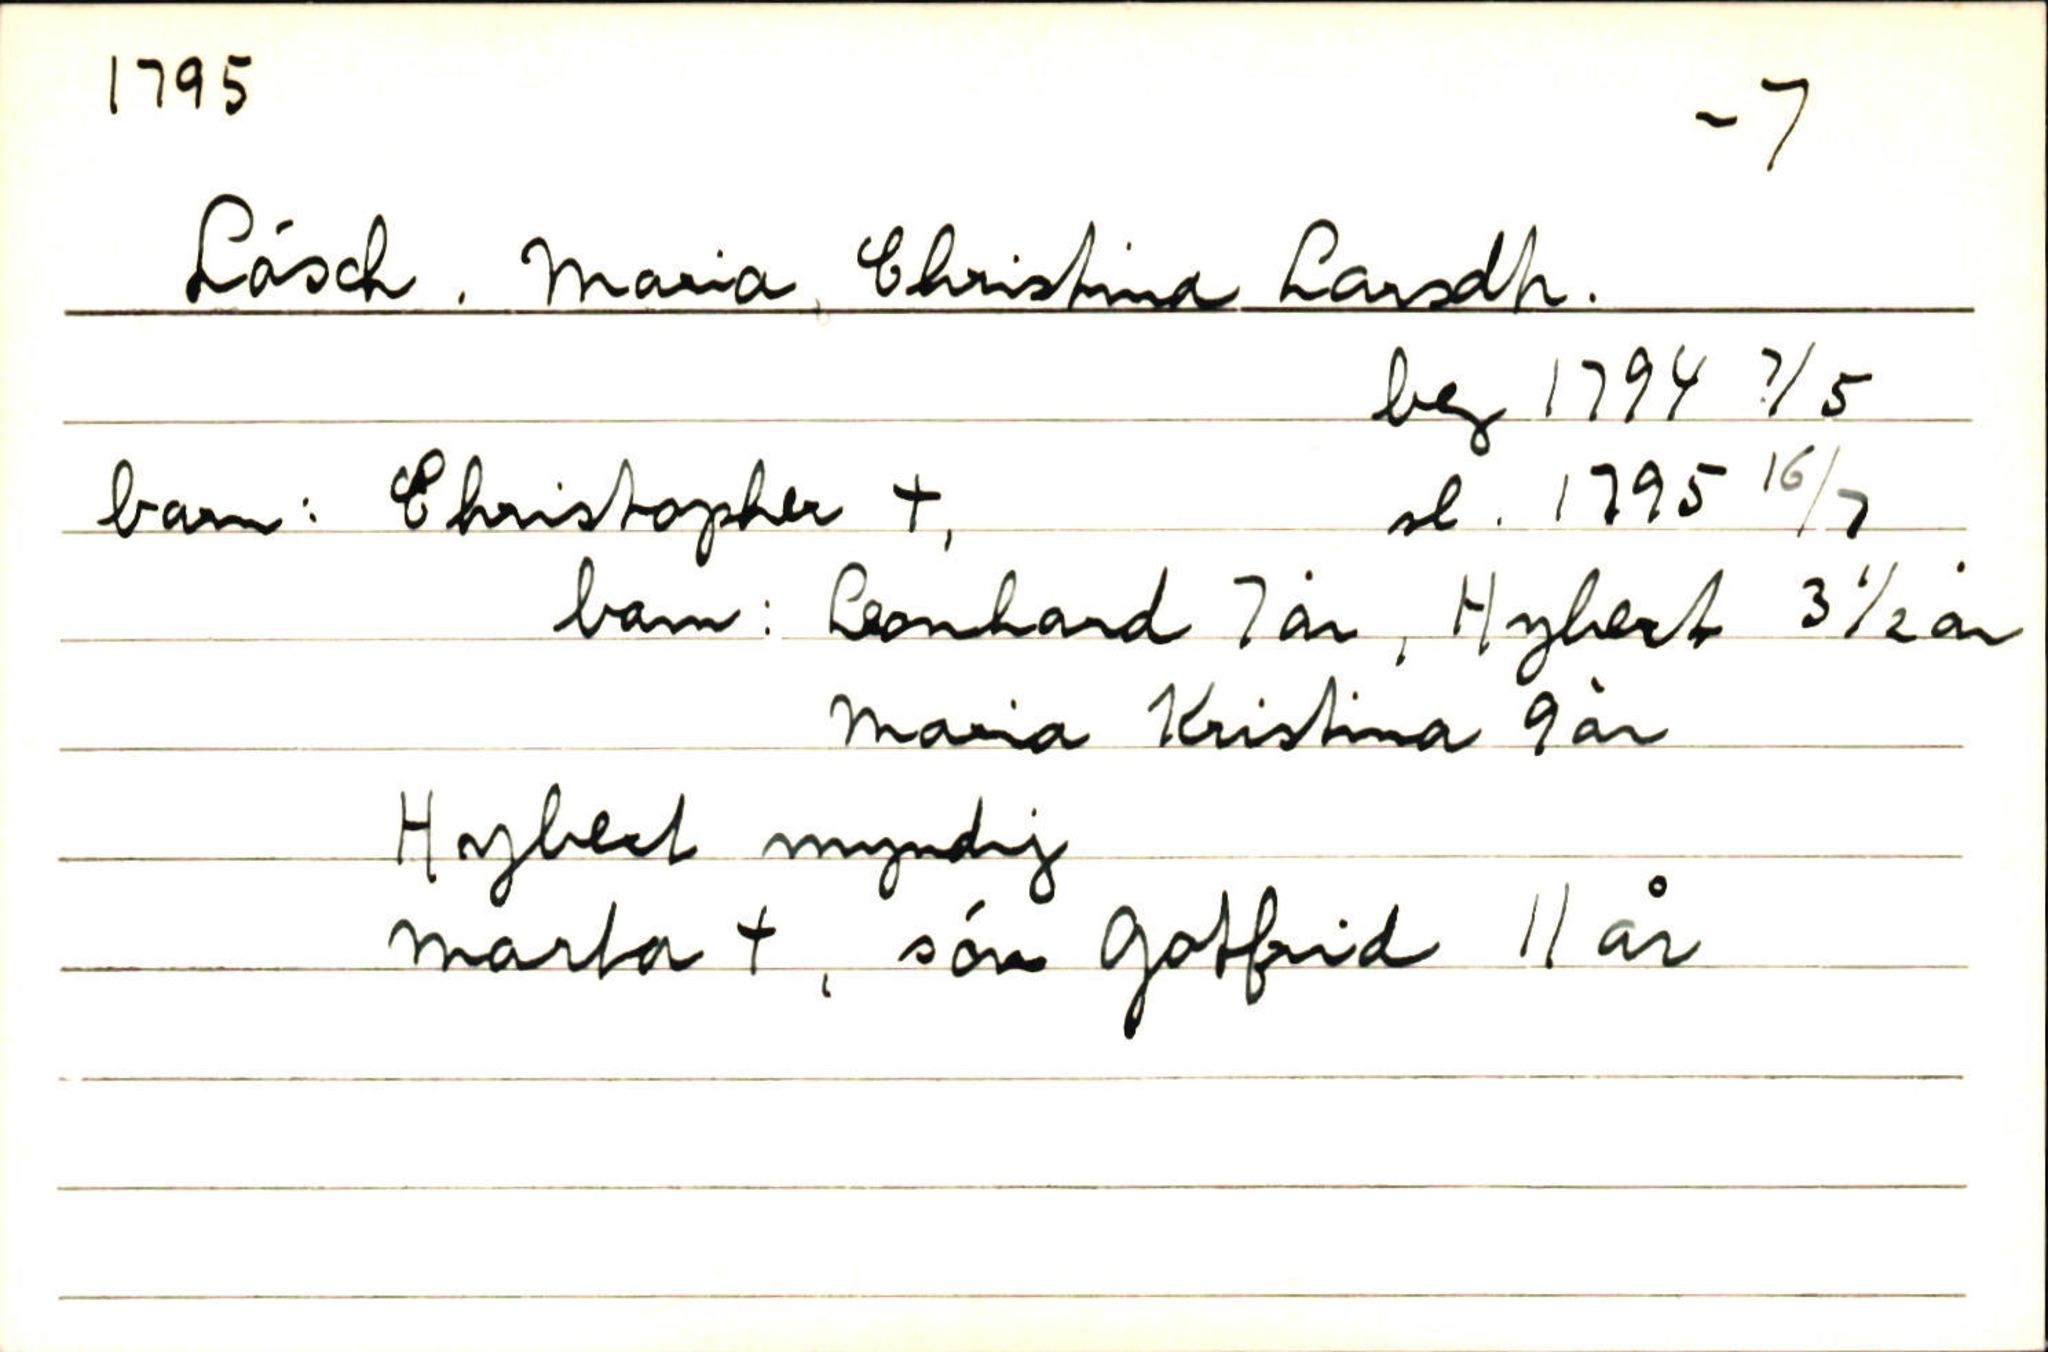 1795
-7
Lösch. Maria Christina Larsdtr.
beg 1794 7/5
barn: Christopher +, sl. 1795 16/7
barn: Leonhard 7 år, Hybert 3 1/2 år
Maria Kristina 9 år
Hybert myndig
Marta +, són Gotfrid 11 år